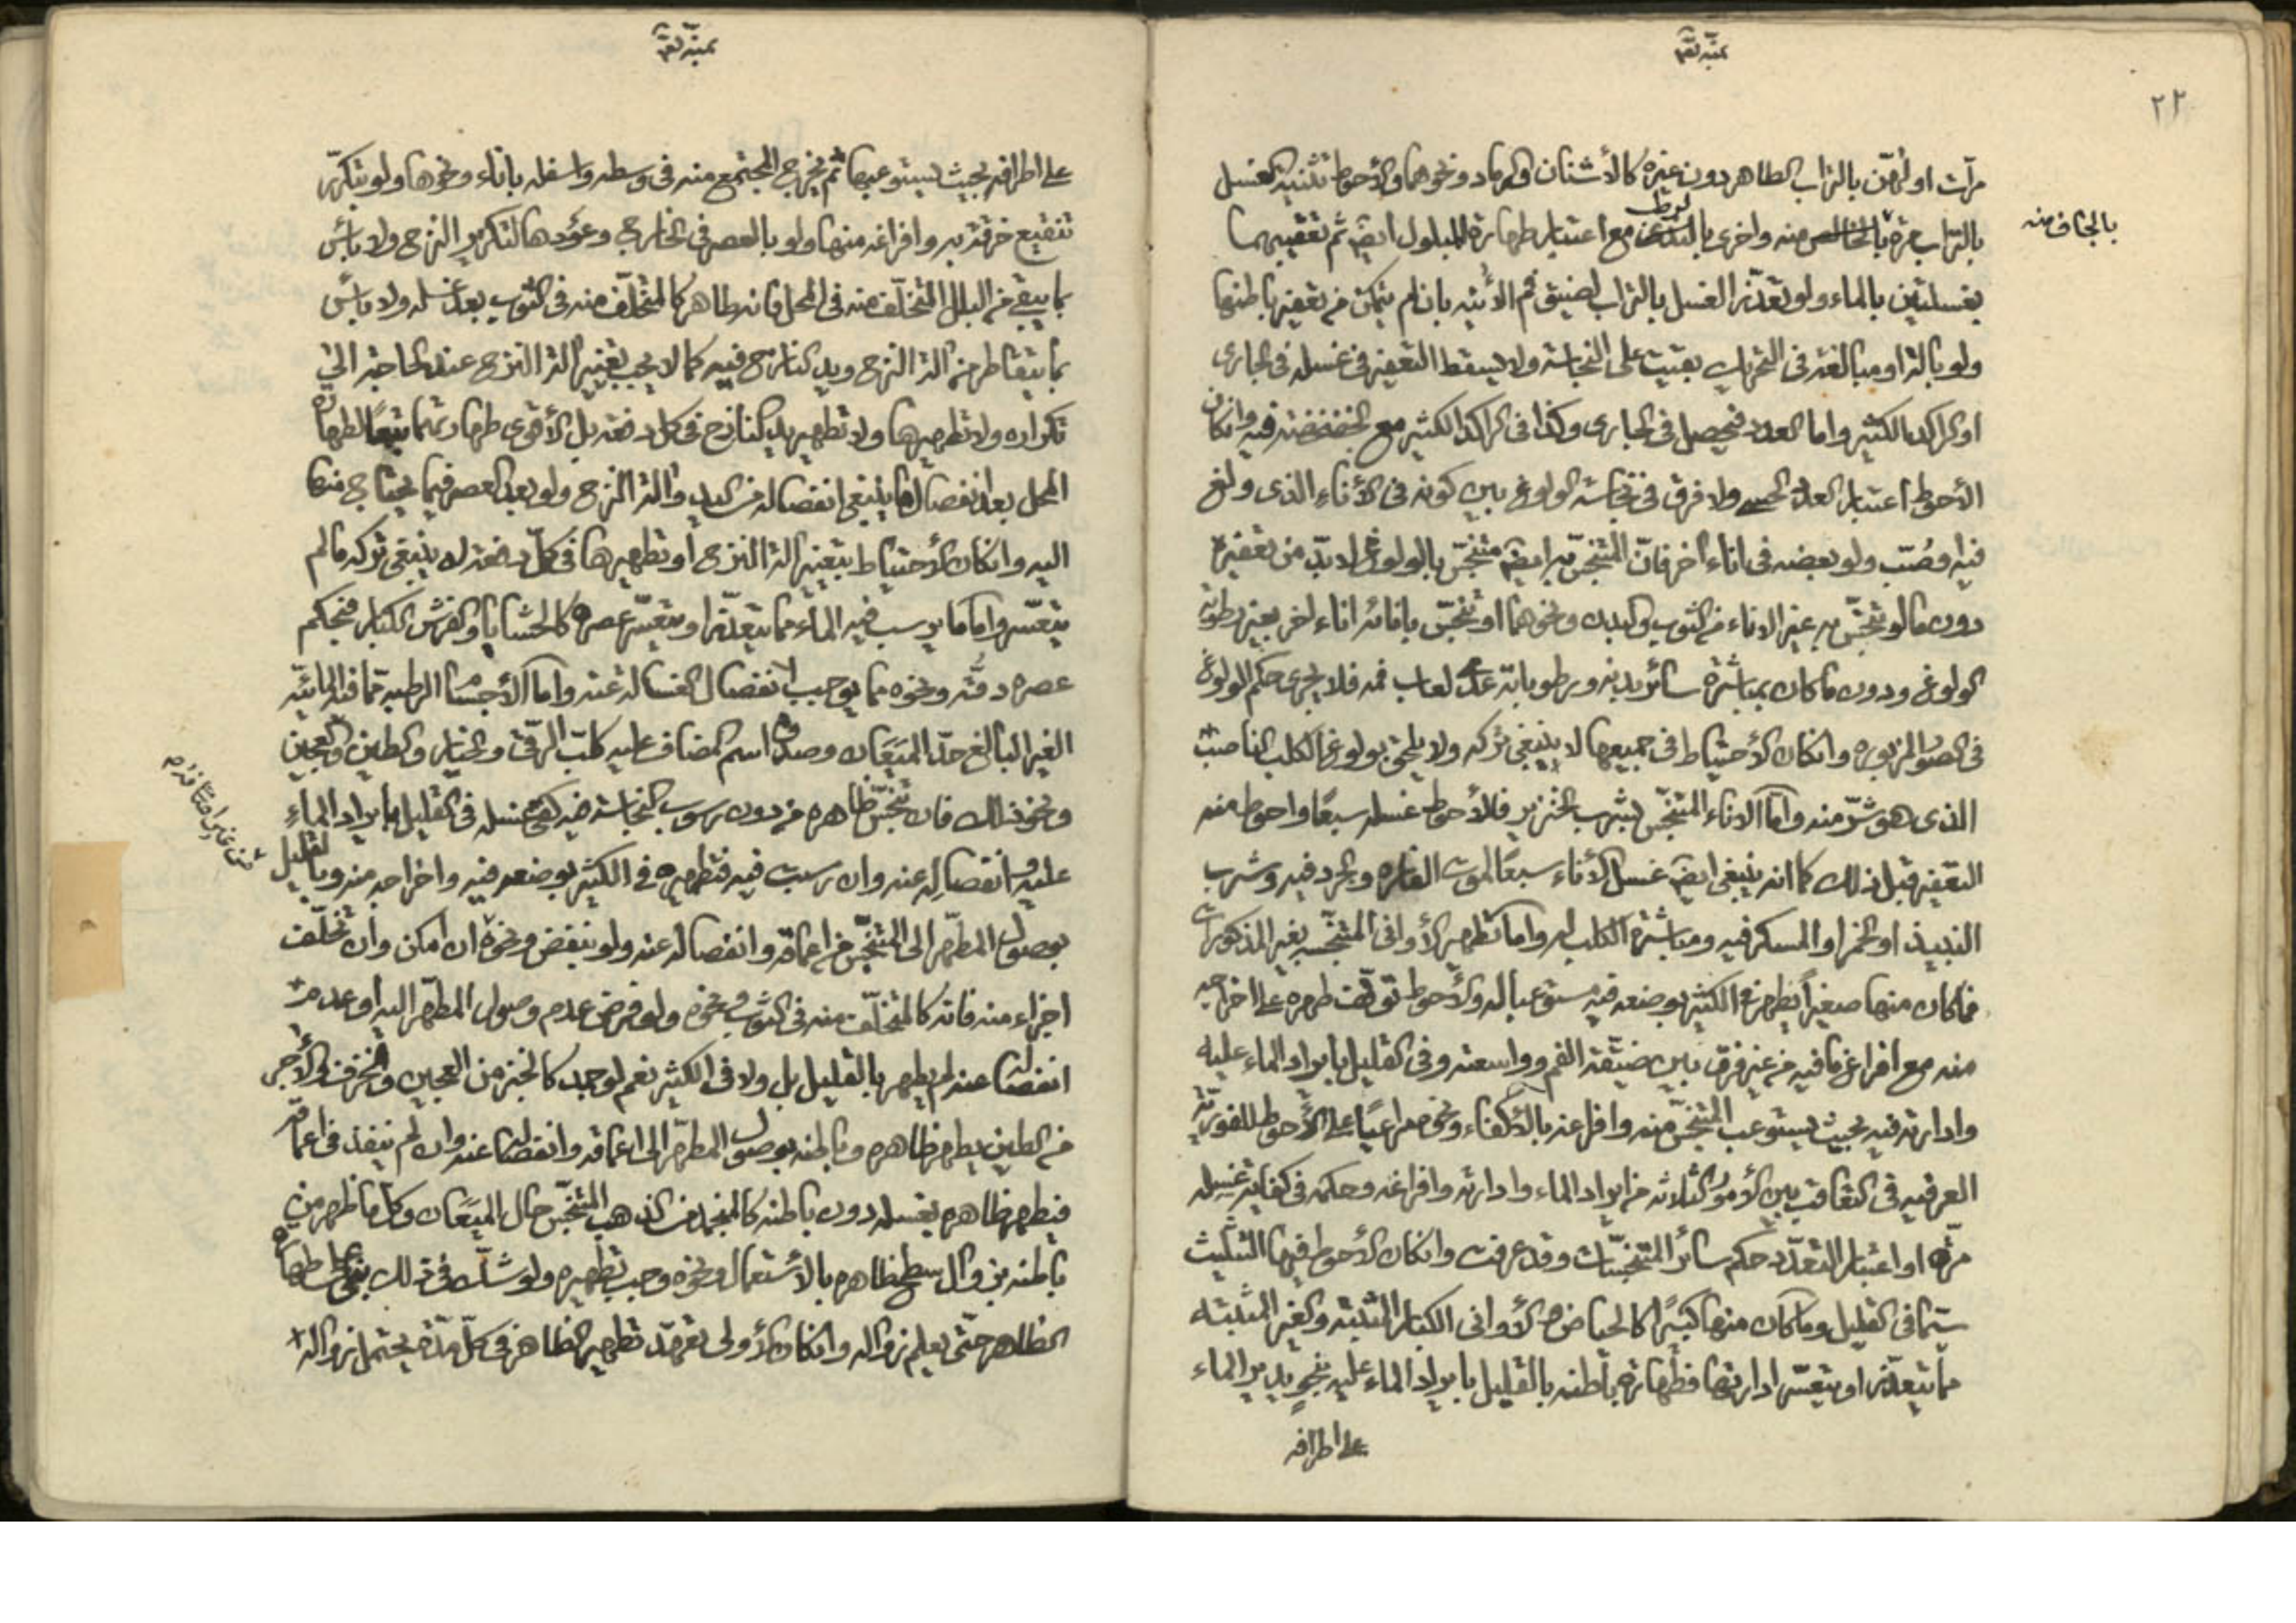 ٢٢
مرّات اولهنّ بالتراب الطاهر دون غيره كالأشنان والرماد ونحوهما والأحوط تثنية الغسل
بالتراب مرة بالخالص منه واخرى بالرطب مع اعتبار طهارة المبلول ايض ثم تعقيبهما
بالجاف منه
بغسلتين بالماء ولو تعذّر الغسل بالتراب لضيق فم الآنية بان لم يتمكن من تعفير باطنها
ولو بآلة او مبالغة فى التحريك بقيت على النجاسة ولا يسقط التعفير فى غسله فى الجارى
او الراكد الكثير واما العدد فيحصل فى الجارى وكذا فى الراكد الكثير مع الخضخضة فيه وانكان
الأحوط اعتبار العدد ولا فرق فى نجاسة الولوغ بين كونه فى الأناء الذى ولغ
فيه او صُبّ ولو بعضه فى اناء آخر فانّ المتنجّس به ايض متنجّس بالولوغ لا بدّ من تعفيره
دون ما لو تنجّس به غير الاناء من الثوب والبدن ونحوهما او تنجّس باناء اخر بغير رطوبة
الولوغ ودون ما كان بمباشرة سائر بدنه ورطوباته عدا لعاب فمه فلا يجرى حكم الولوغ
فى الصور المزبورة وانكان الأحتياط فى جميعها لا ينبغى تركه ولا يلحق بولوغ الكلب الناصب
الذى هو شرّ منه وامّا الاناء المتنجّس بشرب الخنزير فالأحوط غسله سبعًا واحوط منه
التعفير قبل ذلك كما انه ينبغى ايض غسل الأناء سبعًا لموت الفارة والجرد فيه وشرب
النبيذ او الخمر او المسكر فيه ومباشرة الكلب له واما تطهير الأوانى المتنجّسه بغير المذكورات
فما كان منها صغيراً يطهر فى الكثير بوضعه فيه مستوعبا له والأحوط توقّف طهره على اخراجه
منه مع افراغ ما فيه من غير فرق بين ضيّقة الفم وواسعته وفى القليل بايراد الماء عليه
وادارته فيه بحيث يستوعب المتنجّس منه وافراغه بالأكفاء ونحوه مراعيًا على الأحوط للفوريّة
العرفيه فى التعاقب بين الأمور الثلاثه من ايراد الماء وادارته وافراغه وحكمه فى كفاية غسله
مرّة او اعتبار التعدّد حكم سائر المتنجّسات وقد عرفت وانكان الأحوط فيها التثليث
سيّما فى القليل وما كان منها كبيرًا كالحياض والأوانى الكبار المثبته والغير المثبته
ممّا يتعذّر او يتعسّر ادارتها فطهارة باطنه بالقليل بايراد الماء عليه الماء
على اطرافه
على اطرافه بحيث يستوعبها ثم يخرج المجتمع منه فى وسطه واسفله باناء ونحوها ولو بتكرّر
تنقيع خرقة به وافراغه منها ولو بالعصر فى الخارج وعودها لتكرير النزح ولا بأس
بما يبقى من البلل المتخلّف منه فى المحل فانه طاهر كالمتخلّف منه فى الثوب بعد غسله ولا بأس
بما يتقاطر من آلة النزح ويد النازح فيه كما لا يجب تغيير آلة النزح عند الحاجة الى
تكراره ولا تطهيرها ولا تطهير يد النازح فى كل دفعة بل الأقوى طهارتهما تبعًا لطهارة
المحل بعد انفصال ما ينبغى انفصاله من اليد وآلة النزح ولو بعد العصر فيما يحتاج منها
اليه وانكان الأحتياط بتغيير آلة النزح او تطهيرها فى كلّ دفعة لا ينبغى تركه ما لم
يتعسّر واما ما يرسب فيه الماء مما يتعذّر او يتعسّر عصره كالحشايا والفرش الكبار فبحكم
عصره دقّه ونحوه مما يوجب انفصال الغسالة عنه واما الأجسام الرطبه ممّا فيه المائيّه
الغير البالغ حدّ الميَعان وصدق اسم المضاف عليه كلبّ الرقّى والخيار والطين والعجين
ونحو ذلك فان تنجّس ظاهره من دون رسوب النجاسة فيه كفى غسله فى القليل بايراد الماء
عليه وانفصاله عنه وان رسبت فيه فتطهيره فى الكثير بوضعه فيه واخراجه منه وبالقليل
بوصول المطهّر الى المتنجّس من اعماقه وانفصاله عنه ولو بنفض ونحوه ان امكن وان تخلّف
اجزاء منه فانه كالمتخلّف منه فى الثوب ونحوه ولو فرض عدم وصول المطهّر اليه او عدم
انفصاله عنه لم يطهر بالقليل بل ولا فى الكثير نعم لو جمد كالخبز من العجين والخزف والآجر
من الطين يطهر ظاهره وباطنه بوصول المطهّر الى اعماقه وانفصاله عنه وان لم ينفذ فى اعماقه
فيطهر ظاهره بغسله دون باطنه كالمنجمد من الذهب المتنجّس حال الميَعان وكل ما ظهر من
باطنه بزوال سطح ظاهره بالأستعمال ونحوه وجب تطهيره ولو شكّ فى ذلك بنى على طهارة
الظاهر حتّى يعلم زواله وانكان الأولى تعهّد تطهير الظاهر فى كلّ مدّة يحتمل زواله